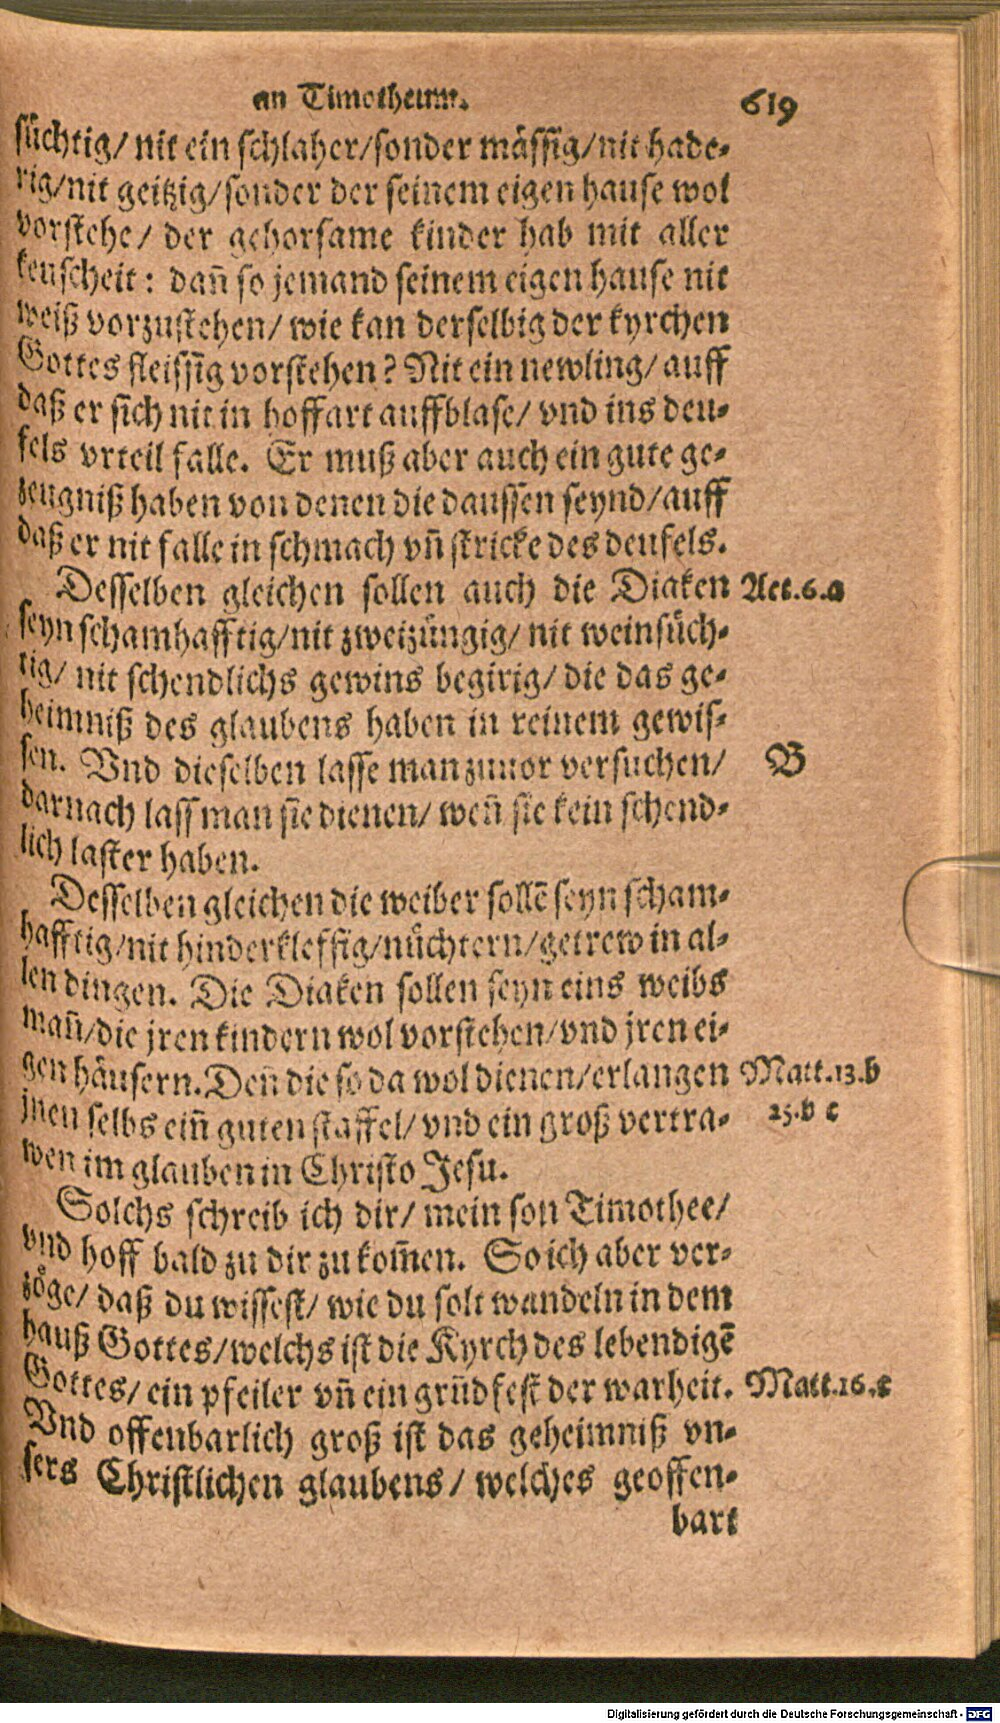 an Timotheum. 619
süchtig/ nit ein schlaher/sonder mässig/nit hade-
rig/nit geitzig/sonder der seinem eigen hause wol
vorstehe/ der gehorsame kinder hab mit aller
keuscheit: dañ so jemand seinem eigen hause nit
weiß vorzustehen/ wie kan derselbig der kyrchen
Gottes fleissig vorstehen? Nit ein newling/ auff
daß er sich nit in hoffart auffblase/ vnd ins deu-
fels vrteil falle. Er muß aber auch ein gute ge-
zeugniß haben von denen die daussen seynd/auff
daß er nit falle in schmach vñ stricke des deufels.
Desselben gleichen sollen auch die Diaken Act.6.a
seyn schamhafftig/nit zweizüngig/ nit weinsüch-
tig/ nit schendlichs gewins begirig/ die das ge-
heimniß des glaubens haben in reinem gewis-
sen. Vnd dieselben lasse man zuuor versuchen/ B
darnach lass man sie dienen/ weñ sie kein schend-
lich laster haben.
Desselben gleichen die weiber sollẽ seyn scham-
hafftig/nit hinderkleffig/nüchtern/getrew in al-
len dingen. Die Diaken sollen seyn eins weibs
mañ/die jren kindern wol vorstehen/vnd jren ei-
gen häusern. Deñ die so da wol dienen/erlangen Matt.13.b
jnen selbs eiñ guten staffel/ vnd ein groß vertra- 25.b c
wen im glauben in Christo Jesu.
Solchs schreib ich dir/ mein son Timothee/
vnd hoff bald zu dir zu kom̃en. So ich aber ver-
zöge/ daß du wissest/ wie du solt wandeln in dem
hauß Gottes/welchs ist die Kyrch des lebendigẽ
Gottes/ ein pfeiler vñ ein grũdfest der warheit. Matt.16.c
Vnd offenbarlich groß ist das geheimniß vn-
sers Christlichen glaubens/ welches geoffen-
bart
Digitalisierung gefördert durch die Deutsche Forschungsgemeinschaft - DFG